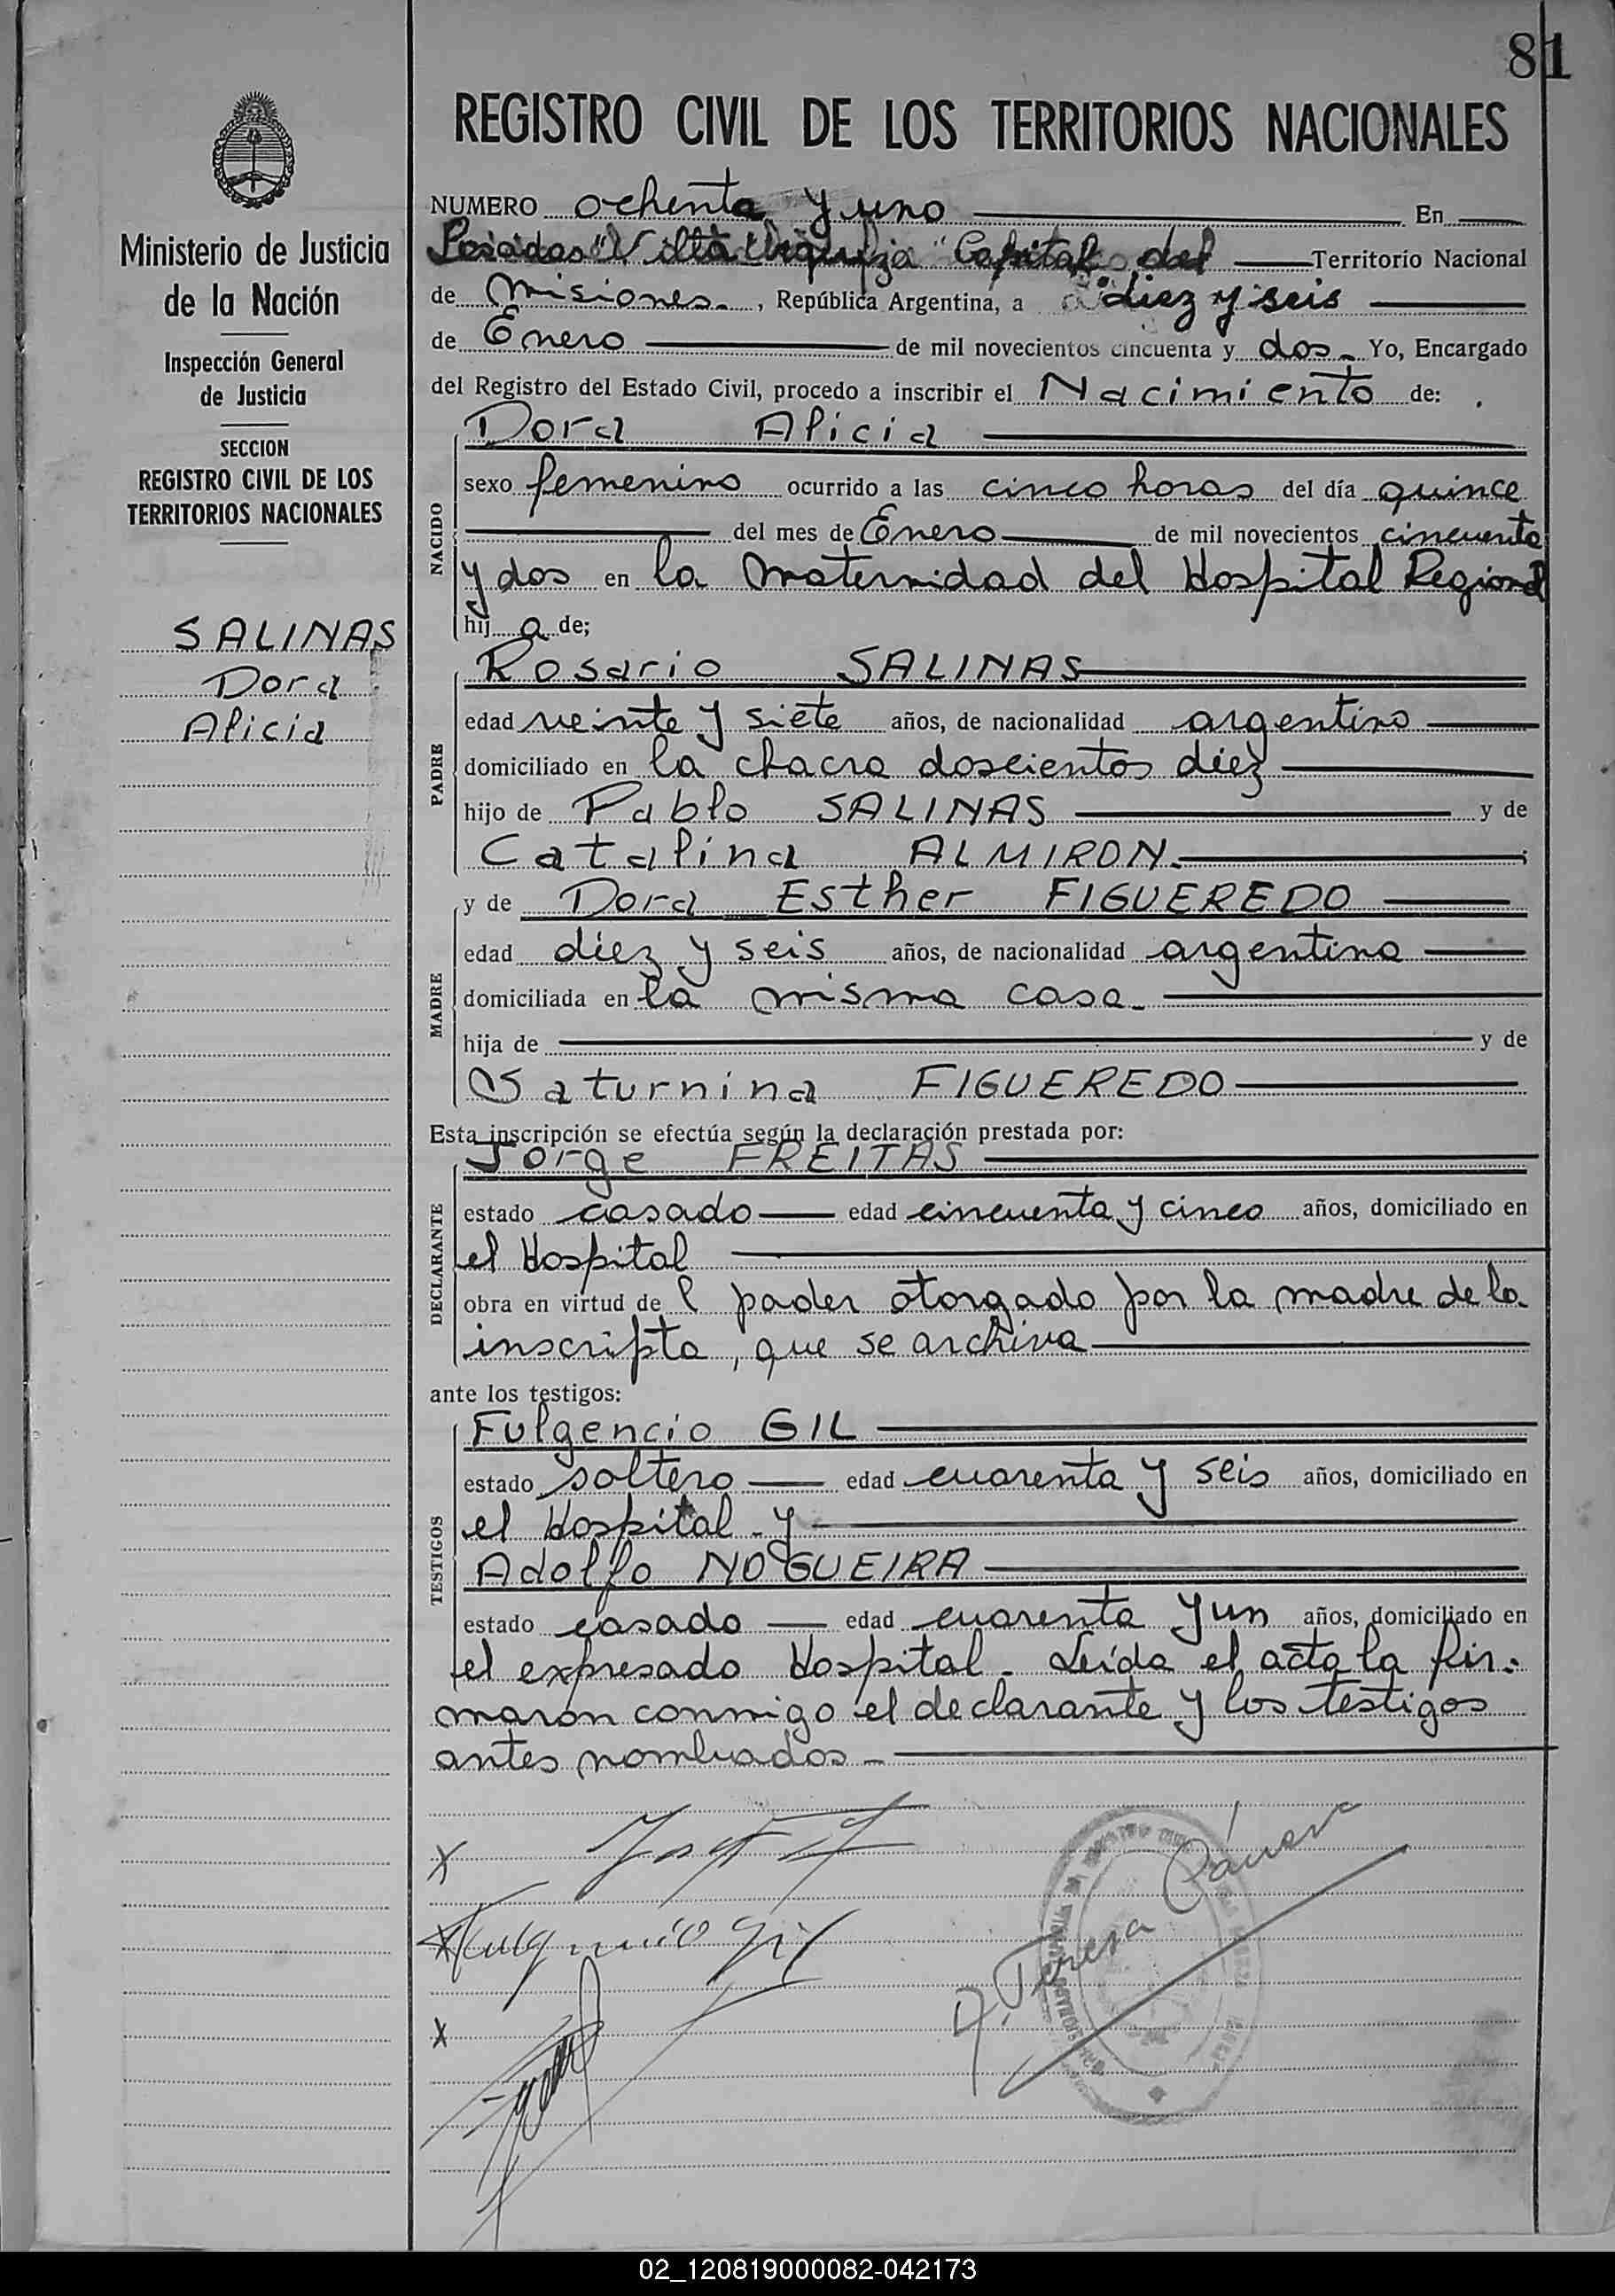 81
REGISTRO CIVIL DE LOS TERRITORIOS NACIONALES
Ministerio de Justicia
de la Nación
Inspección General
de Justicia
SECCION
REGISTRO CIVIL DE LOS
TERRITORIOS NACIONALES
SALINAS
Dora
Alicia
NUMERO ochenta y uno En
Posadas "Villa Urquiza" Capital del Territorio Nacional
de Misiones., República Argentina, a diez y seis
de Enero de mil novecientos cincuenta y dos. Yo, Encargado
del Registro del Estado Civil, procedo a inscribir el Nacimiento de:
Dora Alicia
NACIDO
sexo femenino ocurrido a las cinco horas del día quince
del mes de Enero de mil novecientos cincuenta
y dos en la Maternidad del Hospital Regional
hij a de;
Rosario SALINAS
PADRE
edad veinte y siete años, de nacionalidad argentino
domiciliado en la chacra doscientos diez
hijo de Pablo SALINAS y de
Catalina ALMIRON.
y de Dora Esther FIGUEREDO
MADRE
edad diez y seis años, de nacionalidad argentina
domiciliada en la misma casa
hija de y de
Saturnina FIGUEREDO
Esta inscripción se efectúa según la declaración prestada por:
Jorge FREITAS
DECLARANTE
estado casado edad cincuenta y cinco años, domiciliado en
el Hospital
obra en virtud de l poder otorgado por la madre de la
inscripta, que se archiva
ante los testigos:
Fulgencio GIL
TESTIGOS
estado soltero edad cuarenta y seis años, domiciliado en
el Hospital y
Adolfo NOGUEIRA
estado casado edad cuarenta y un años, domiciliado en
el expresado Hospital. Leída el acta la fir-
maron conmigo el declarante y los testigos
antes nombrados
X
X Fulgencio Gil
X
Teresa
02_120819000082-042173